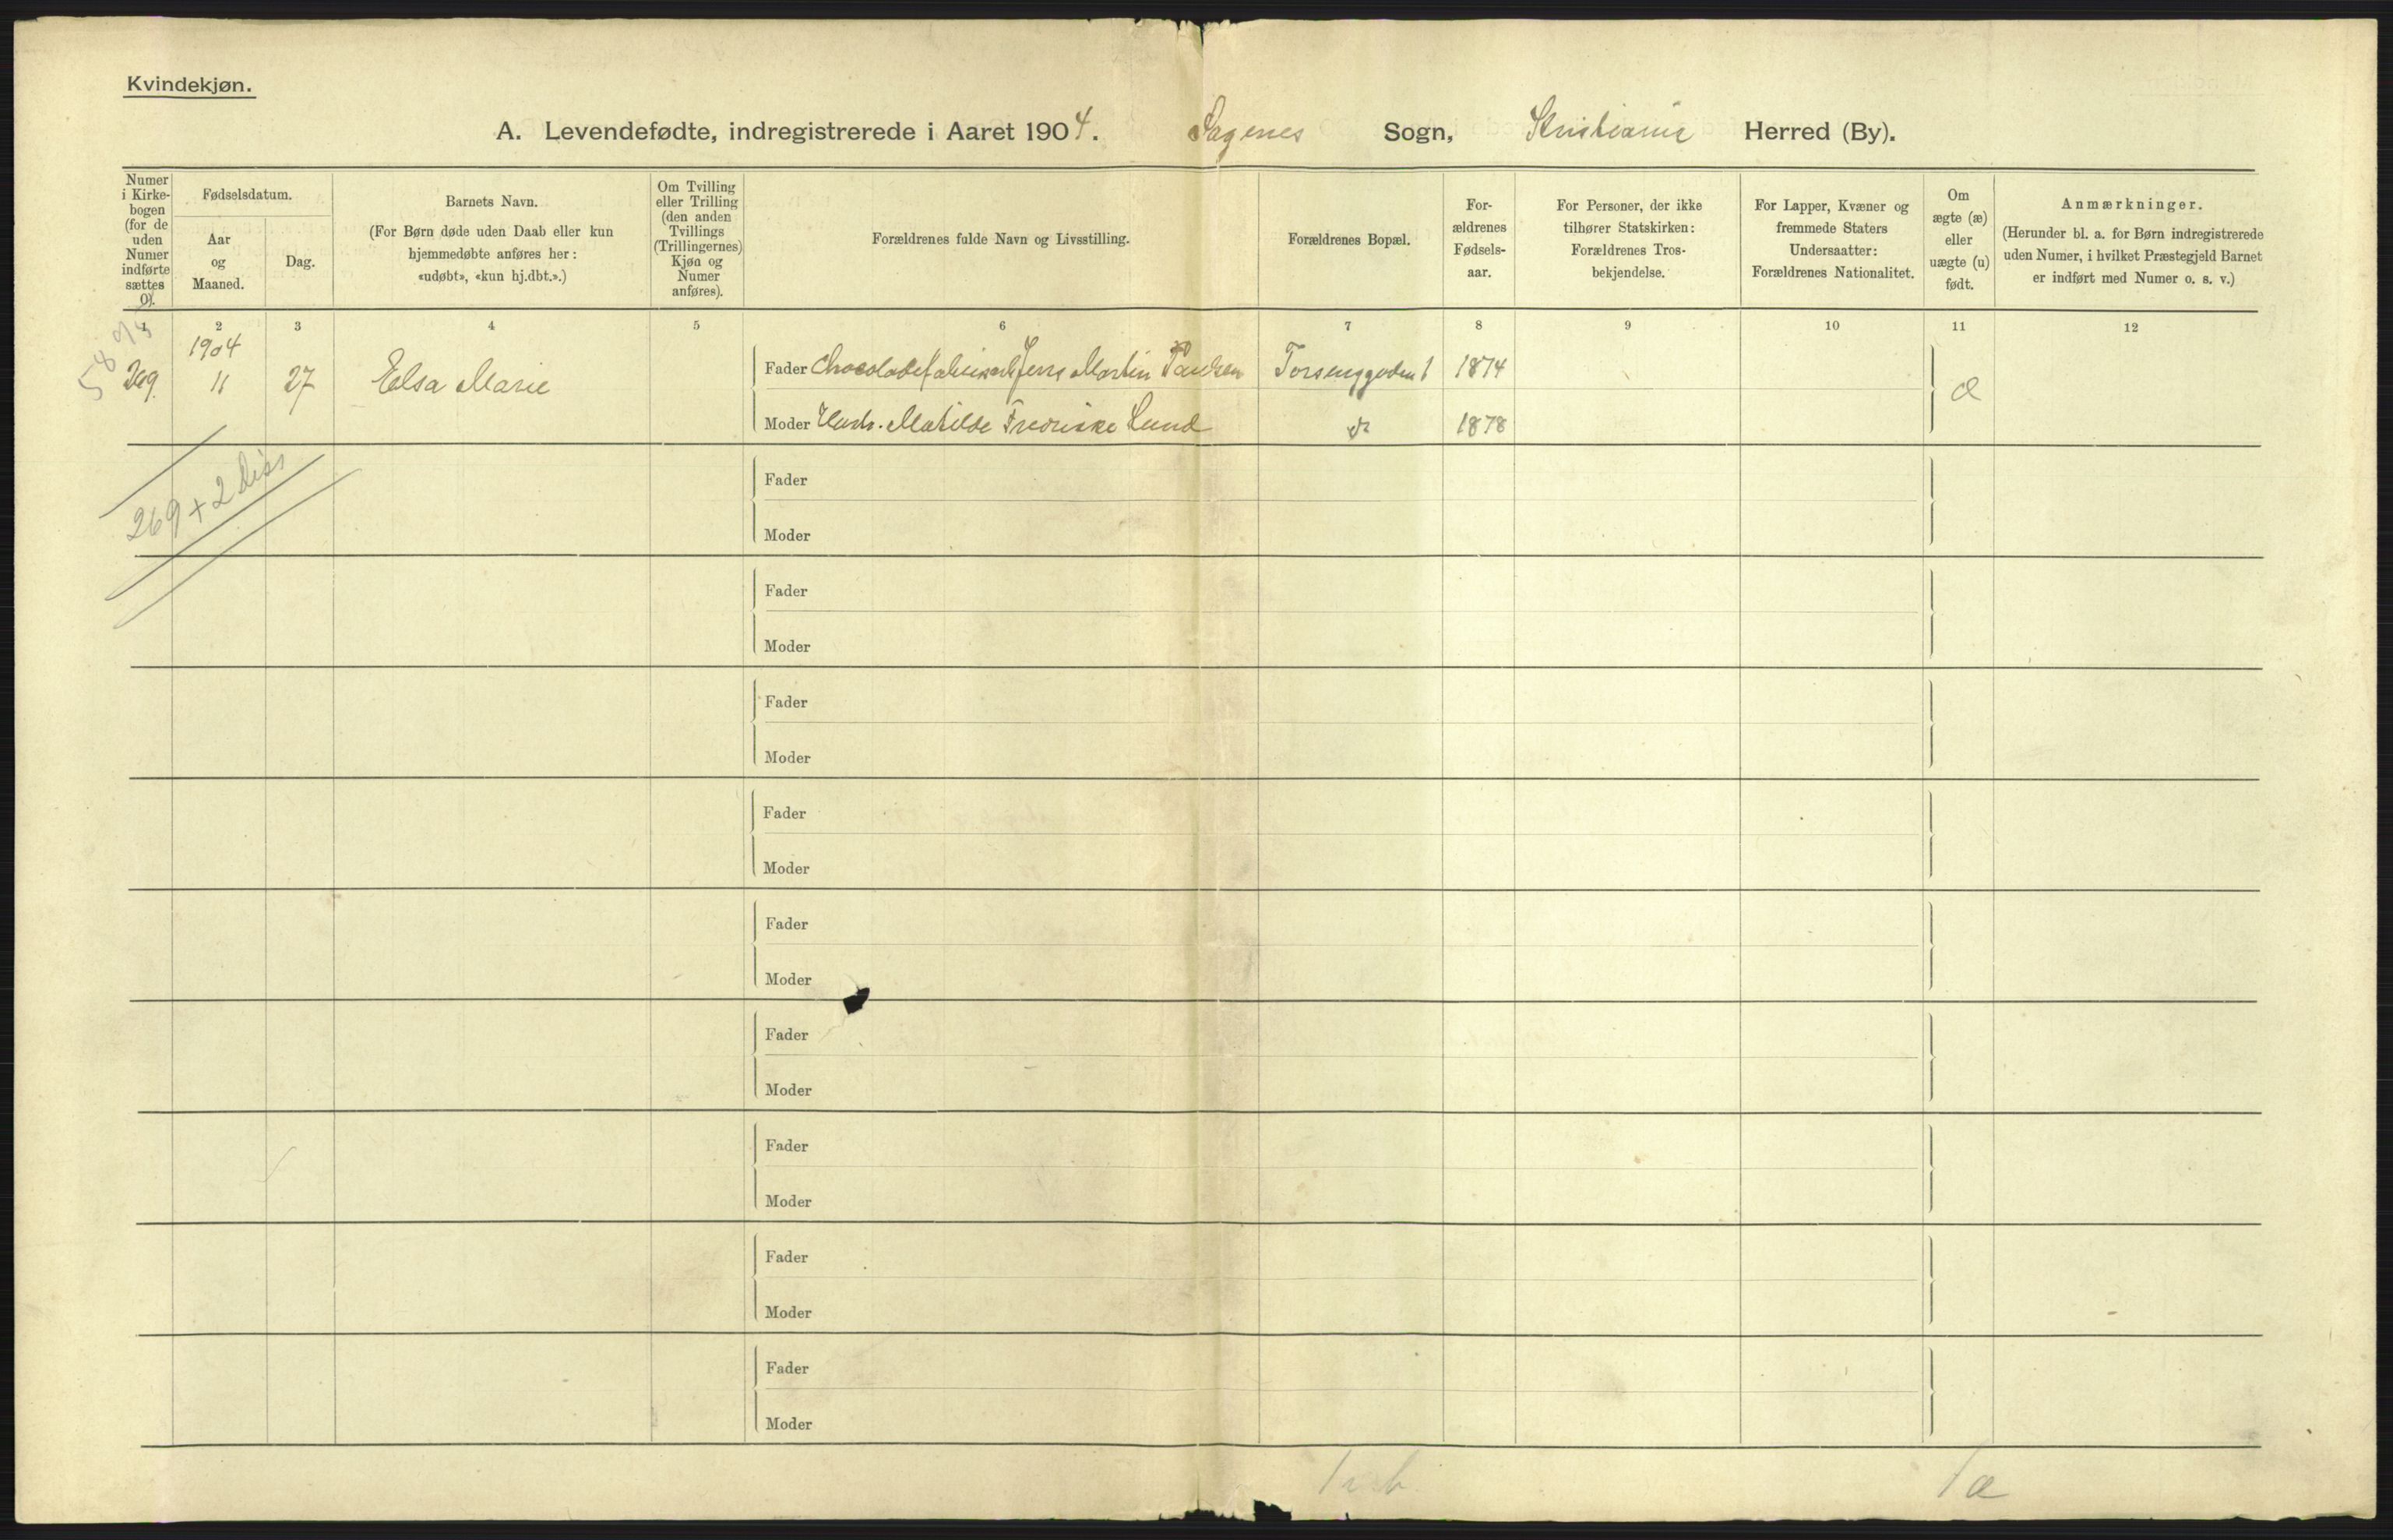 Kvindekjøn.
A. Levendefødte, indregistrerede i Aaret 1904. Sagenes Sogn, Kristiania Herred (By).
Numer
i Kirke-
bogen
(for de
uden
Numer
indførte
sættes
0).
Fødselsdatum.
Aar
og
Maaned.
Dag.
Barnets Navn.
(For Børn døde uden Daab eller kun
hjemmedøbte anføres her:
«udøbt», «kun hj.dbt.».)
Om Tvilling
eller Trilling
(den anden
Tvillings
(Trillingernes)
Kjøn og
Numer
anføres).
Forældrenes fulde Navn og Livsstilling.
Forældrenes Bopæl.
For-
ældrenes
Fødsels-
aar.
For Personer, der ikke
tilhører Statskirken:
Forældrenes Tros-
bekjendelse.
For Lapper, Kvæner og
fremmede Staters
Undersaatter:
Forældrenes Nationalitet.
Om
ægte (æ)
eller
uægte (u)
født.
Anmærkninger.
(Herunder bl. a. for Børn indregistrerede
uden Numer, i hvilket Præstegjeld Barnet
er indført med Numer o. s. v.)
1 2 3 4 5 6 7 8 9 10 11 12
1904
269. 11 27 Elsa Marie
Fader Jens Martin Paulsen 1874
æ
Moder Hustr. Matilde Fredrikke Lund do 1878
269 + 2 diss
Fader
Moder
Fader
Moder
Fader
Moder
Fader
Moder
Fader
Moder
Fader
Moder
Fader
Moder
Fader
Moder
Fader
Moder
1 æ